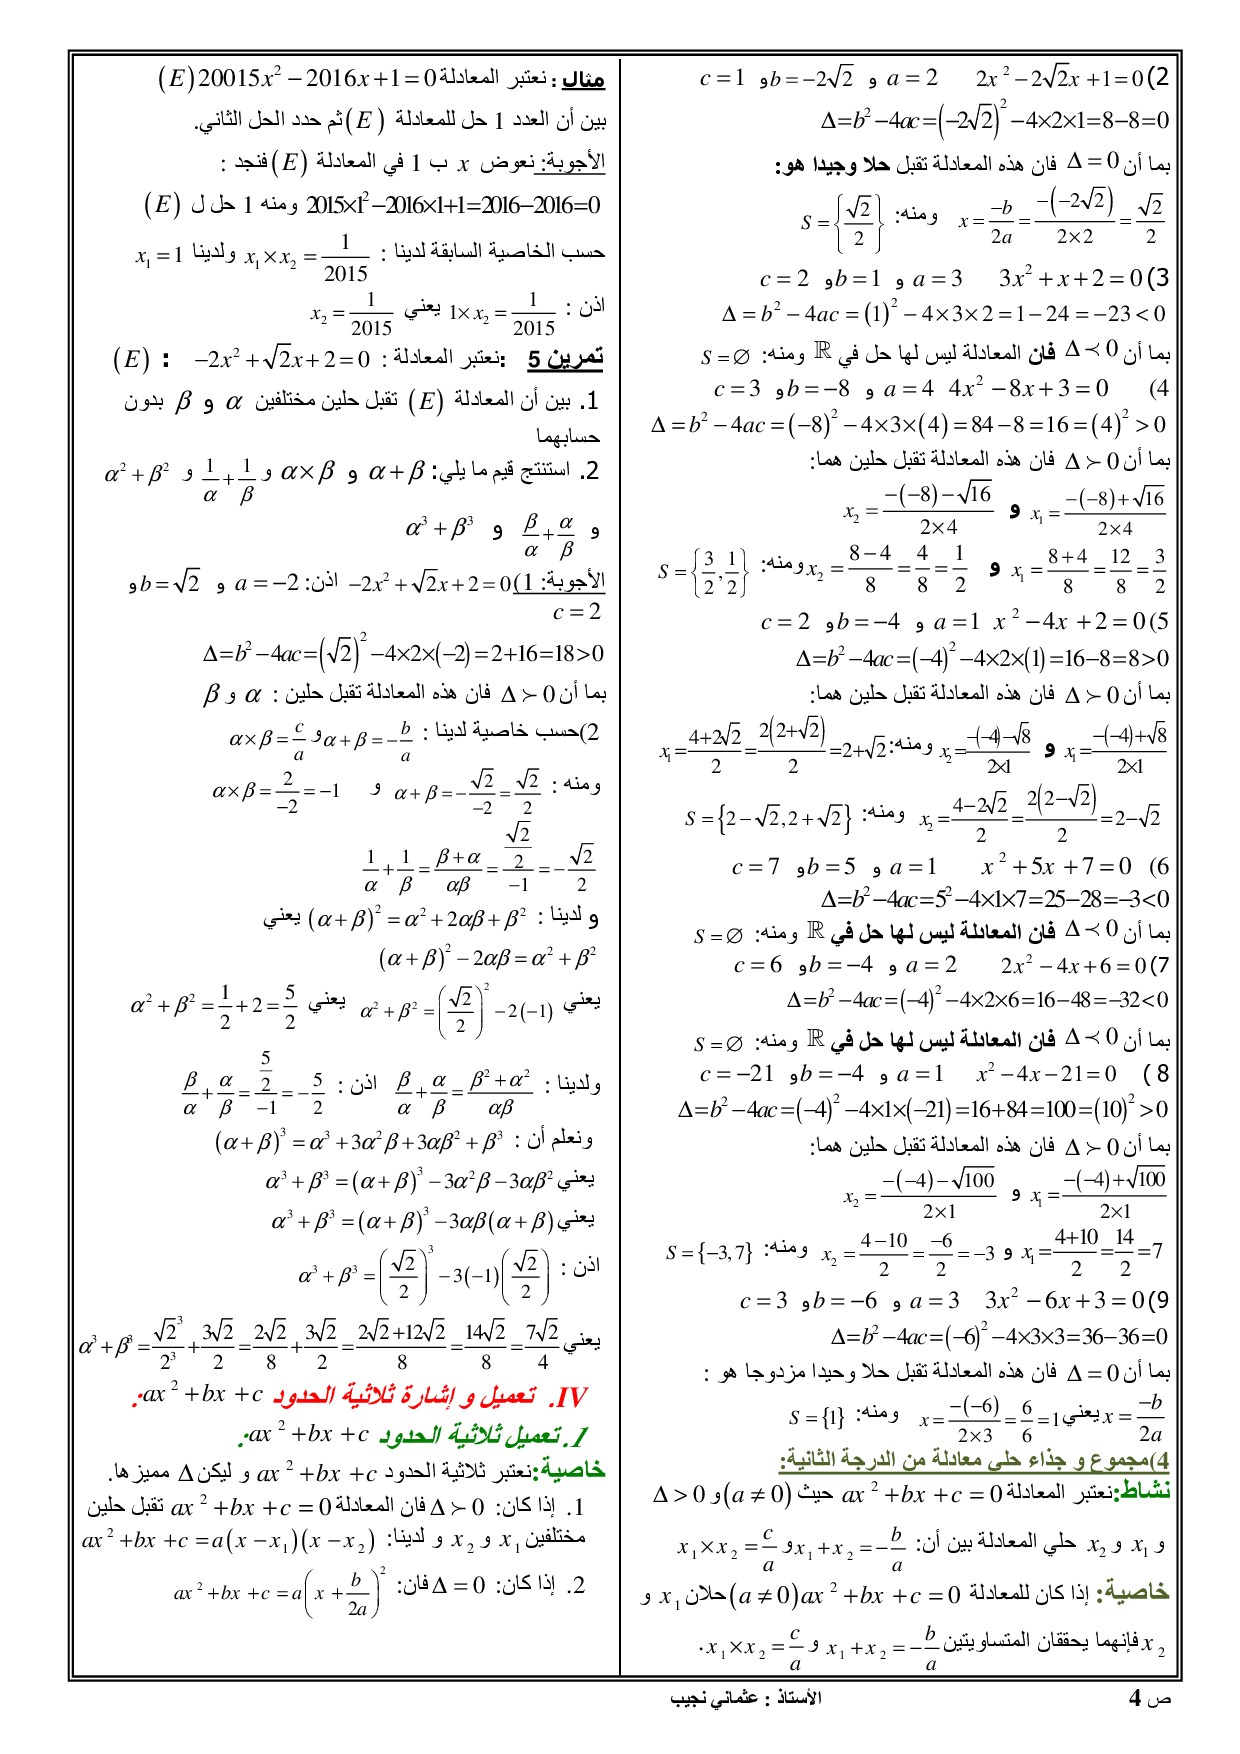 2) 2x² − 2√2x + 1 = 0   a = 2 و b = −2√2 و c = 1
Δ=b²−4ac=(−2√2)²−4×2×1=8−8=0
بما أن Δ = 0 فان هذه المعادلة تقبل حلا وحيدا هو:
x = −b/2a = −(−2√2)/2×2 = √2/2 ومنه: S = {√2/2}
3) 3x² + x + 2 = 0   a = 3 و b = 1 و c = 2
Δ = b² − 4ac = (1)² − 4×3×2 = 1 − 24 = −23 < 0
بما أن Δ ≺ 0 فان المعادلة ليس لها حل في ℝ ومنه: S = ∅
4) 4x² − 8x + 3 = 0   a = 4 و b = −8 و c = 3
Δ = b² − 4ac = (−8)² − 4×3×(4) = 84 − 8 = 16 = (4)² > 0
بما أن Δ ≻ 0 فان هذه المعادلة تقبل حلين هما:
x₁ = −(−8)+√16/2×4 و x₂ = −(−8)−√16/2×4
x₁ = 8+4/8 = 12/8 = 3/2 و x₂ = 8−4/8 = 4/8 = 1/2 ومنه: S = {3/2, 1/2}
5) x² − 4x + 2 = 0   a = 1 و b = −4 و c = 2
Δ=b²−4ac=(−4)²−4×2×(1)=16−8=8>0
بما أن Δ ≻ 0 فان هذه المعادلة تقبل حلين هما:
x₁=−(−4)+√8/2×1 و x₂=−(−4)−√8/2×1 ومنه: x₁=4+2√2/2=2(2+√2)/2=2+√2
x₂=4−2√2/2=2(2−√2)/2=2−√2 ومنه: S = {2−√2, 2+√2}
6) x² + 5x + 7 = 0   a = 1 و b = 5 و c = 7
Δ=b²−4ac=5²−4×1×7=25−28=−3<0
بما أن Δ ≺ 0 فان المعادلة ليس لها حل في ℝ ومنه: S = ∅
7) 2x² − 4x + 6 = 0   a = 2 و b = −4 و c = 6
Δ=b²−4ac=(−4)²−4×2×6=16−48=−32<0
بما أن Δ ≺ 0 فان المعادلة ليس لها حل في ℝ ومنه: S = ∅
8 ) x² − 4x − 21 = 0   a = 1 و b = −4 و c = −21
Δ=b²−4ac=(−4)²−4×1×(−21)=16+84=100=(10)²>0
بما أن Δ ≻ 0 فان هذه المعادلة تقبل حلين هما:
x₁ = −(−4)+√100/2×1 و x₂ = −(−4)−√100/2×1
x₁=4+10/2=14/2=7 و x₂ = 4−10/2 = −6/2 = −3 ومنه: S = {−3, 7}
9) 3x² − 6x + 3 = 0   a = 3 و b = −6 و c = 3
Δ=b²−4ac=(−6)²−4×3×3=36−36=0
بما أن Δ = 0 فان هذه المعادلة تقبل حلا وحيدا مزدوجا هو :
x = −b/2a يعني x = −(−6)/2×3 = 6/6 = 1 ومنه: S = {1}
4)مجموع و جذاء حلي معادلة من الدرجة الثانية:
نشاط:نعتبر المعادلة ax² + bx + c = 0 حيث (a ≠ 0) و Δ > 0
و x₁ و x₂ حلي المعادلة بين أن: x₁ + x₂ = −b/a و x₁ × x₂ = c/a
خاصية: إذا كان للمعادلة ax² + bx + c = 0 (a ≠ 0) حلان x₁ و
x₂ فإنهما يحققان المتساويتين x₁ + x₂ = −b/a و x₁ × x₂ = c/a .
مثال : نعتبر المعادلة 20015x² − 2016x + 1 = 0 (E)
بين أن العدد 1 حل للمعادلة (E) ثم حدد الحل الثاني.
الأجوبة: نعوض x ب 1 في المعادلة (E) فنجد :
2015×1²−2016×1+1=2016−2016=0 ومنه 1 حل ل (E)
حسب الخاصية السابقة لدينا : x₁ × x₂ = 1/2015 ولدينا x₁ = 1
اذن : 1× x₂ = 1/2015 يعني x₂ = 1/2015
تمرين 5 :نعتبر المعادلة : −2x² + √2x + 2 = 0 : (E)
1. بين أن المعادلة (E) تقبل حلين مختلفين α و β بدون
حسابهما
2. استنتج قيم ما يلي: α + β و α × β و 1/α + 1/β و α² + β²
و β/α + α/β و α³ + β³
الأجوبة: 1) −2x² + √2x + 2 = 0 اذن: a = −2 و b = √2 و
c = 2
Δ=b²−4ac=(√2)²−4×2×(−2)=2+16=18>0
بما أن Δ ≻ 0 فان هذه المعادلة تقبل حلين : α و β
2)حسب خاصية لدينا : α + β = −b/a و α × β = c/a
ومنه : α + β = −√2/−2 = √2/2 و α × β = 2/−2 = −1
1/α + 1/β = β+α/αβ = (√2/2)/−1 = −√2/2
و لدينا : (α + β)² = α² + 2αβ + β² يعني
(α + β)² − 2αβ = α² + β²
يعني α² + β² = (√2/2)² − 2(−1) يعني α² + β² = 1/2 + 2 = 5/2
ولدينا : β/α + α/β = β²+α²/αβ اذن : β/α + α/β = (5/2)/−1 = −5/2
ونعلم أن : (α + β)³ = α³ + 3α²β + 3αβ² + β³
يعني α³ + β³ = (α + β)³ − 3α²β − 3αβ²
يعني α³ + β³ = (α + β)³ − 3αβ(α + β)
اذن : α³ + β³ = (√2/2)³ − 3(−1)(√2/2)
يعني α³+β³ = √2³/2³ + 3√2/2 = 2√2/8 + 3√2/2 = 2√2+12√2/8 = 14√2/8 = 7√2/4
IV. تعميل و إشارة ثلاثية الحدود ax² + bx + c:
1. تعميل ثلاثية الحدود ax² + bx + c:
خاصية:نعتبر ثلاثية الحدود ax² + bx + c و ليكن Δ مميزها.
1. إذا كان: Δ ≻ 0 فان المعادلة ax² + bx + c = 0 تقبل حلين
مختلفين x₁ و x₂ و لدينا: ax² + bx + c = a(x − x₁)(x − x₂)
2. إذا كان: Δ = 0 فان: ax² + bx + c = a(x + b/2a)²
ص 4   الأستاذ : عثماني نجيب